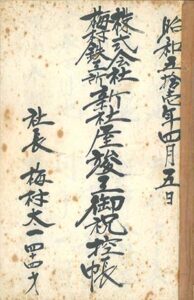 昭和五拾壱年四月五日
株式会社
梅村鉄工所
新社屋竣工御祝控帳
社長 梅村大一 四十四才